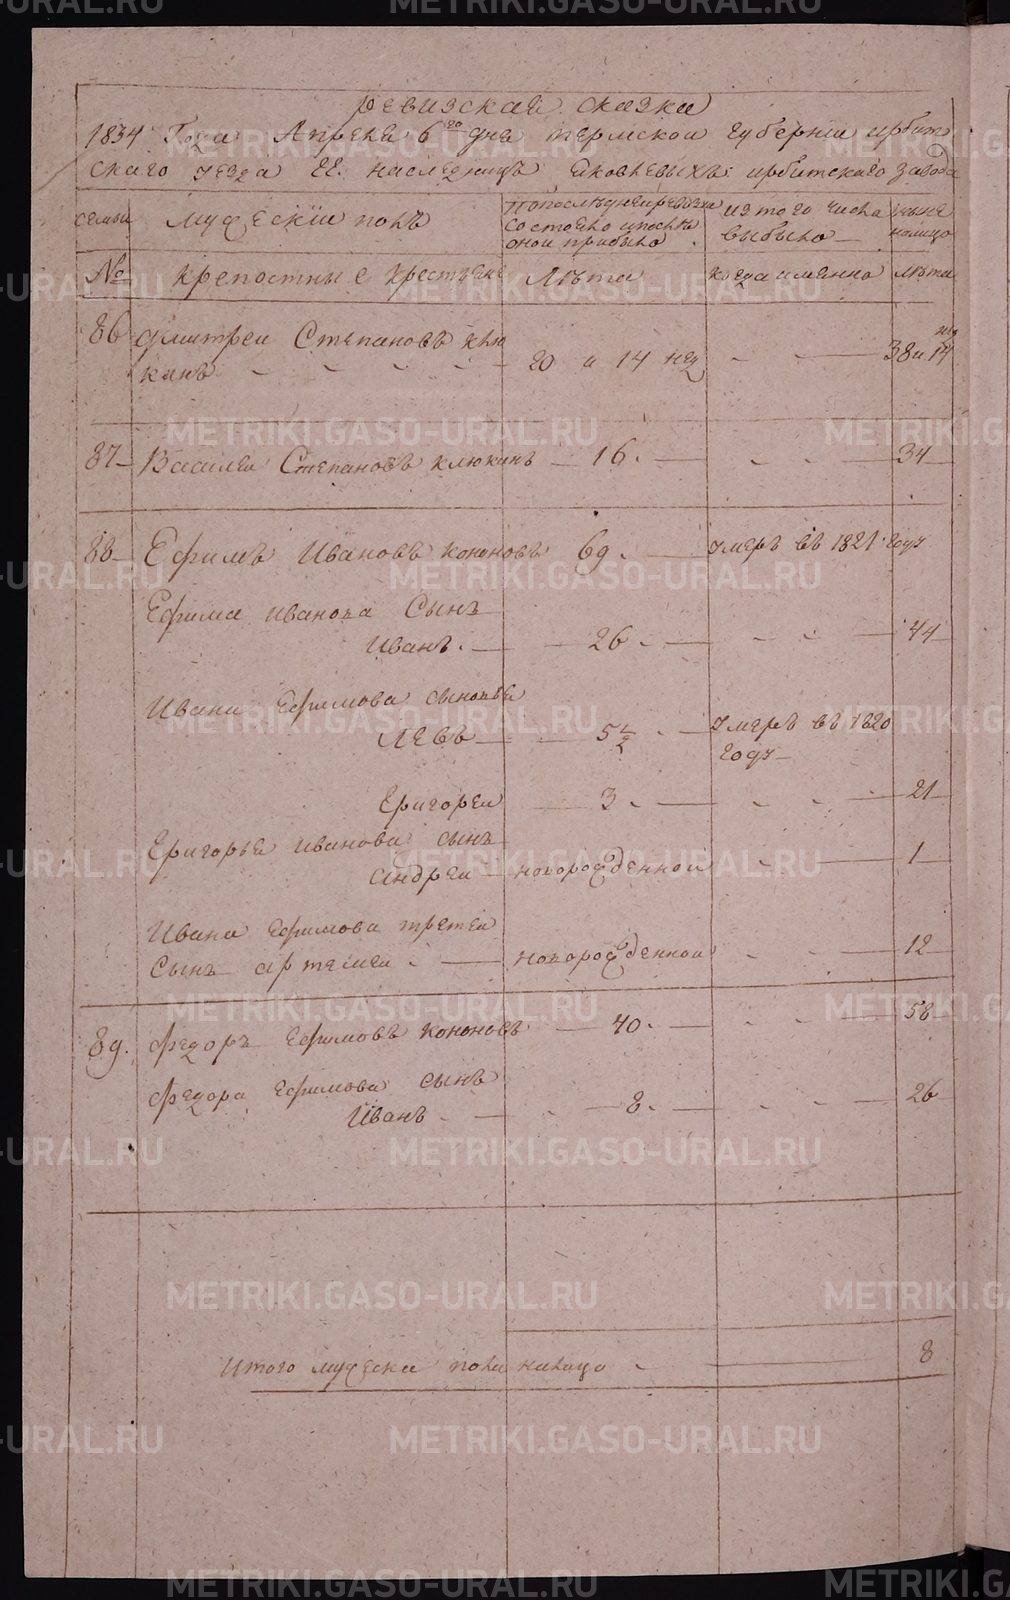 ревизская сказка
1834 Года Апреля 6го дня пермской губернии ирбит
ского уезда ГГ. наследницъ Яковлевыхъ ирбитского завода
семьи мужескïй полъ По последней ревизии состояло и после оной прибыло из того числа выбыло ныне налицо
№ крепостные крестьяне Лѣта когда именно лѣта
86 Дмитреи Степановъ клю
кинъ 20 и 14 нед 38 и 14 нед
87 Василеи Степановъ клюкинъ 16 34
88 Ефимъ Ивановъ кононовъ 69 умеръ въ 1821 году
Ефима иванова Сынъ
Иванъ 26 44
Ивана Ефимова сыновья
Левъ 5 1/2 умеръ въ 1820
году
Григореи 3 21
Григорья иванова сынъ
андреи новорожденной 1
Ивана Ефимова третеи
сынъ артемеи новорожденной 12
89. Федоръ Ефимовъ кононовъ 40 58
Федора Ефимова сынъ
Иванъ 8 26
Итого мужеска пола налицо 8
METRIKI.GASO-URAL.RU